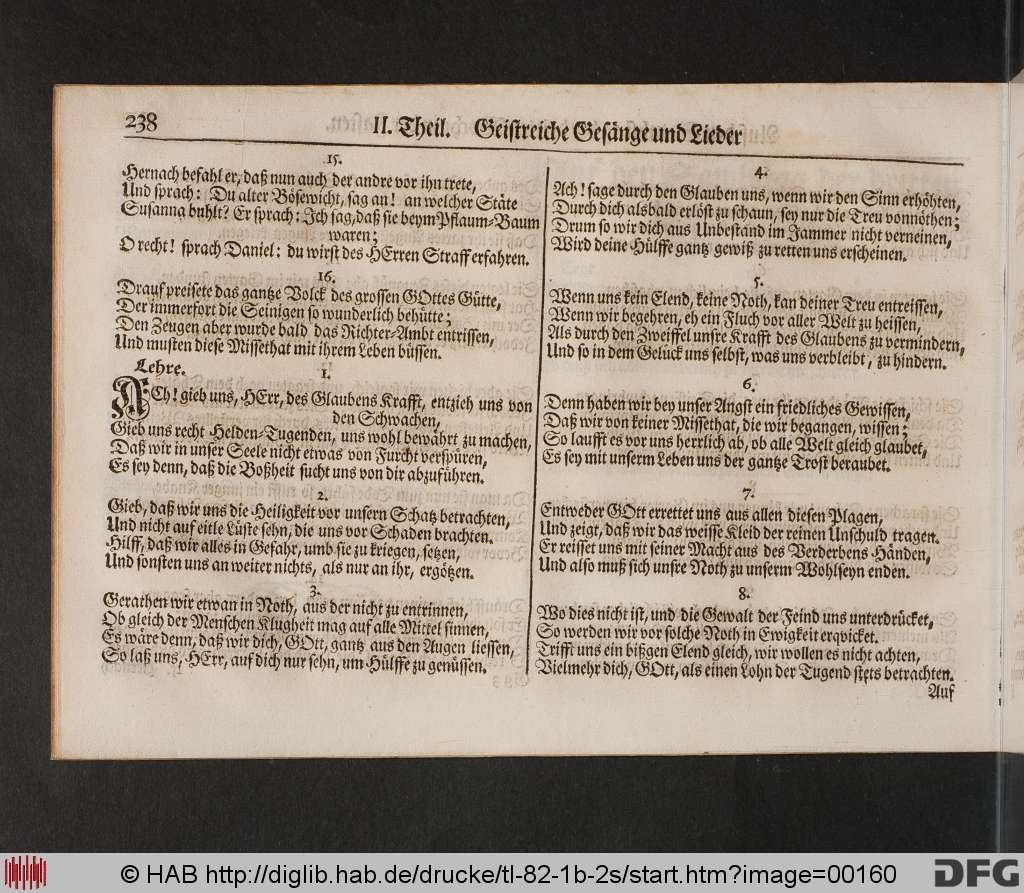 238
II. Theil. Geistreiche Gesänge und Lieder
15.
Hernach befahl er, daß nun auch der andre vor ihn trete,
Und sprach: Du alter Bösewicht, sag an! an welcher Stäte
Susanna buhlt? Er sprach: Ich sag, daß sie beym Pflaum-Baum
waren;
O recht! sprach Daniel: du wirst des HErren Straff erfahren.
16.
Drauf preisete das gantze Volck des grossen GOttes Gütte,
Der immerfort die Seinigen so wunderlich behütte;
Den Zeugen aber wurde bald das Richter-Ambt entrissen,
Und musten diese Missethat mit ihrem Leben büssen.
Lehre.
1.
ACh! gieb uns, HErr, des Glaubens Krafft, entzieh uns von
den Schwachen,
Gieb uns recht Helden-Tugenden, uns wohl bewährt zu machen,
Daß wir in unser Seele nicht etwas von Furcht verspüren,
Es sey denn, daß die Boßheit sucht uns von dir abzuführen.
2.
Gieb, daß wir uns die Heiligkeit vor unsern Schatz betrachten,
Und nicht auf eitle Lüste sehn, die uns vor Schaden brachten.
Hilff, daß wir alles in Gefahr, umb sie zu kriegen, setzen,
Und sonsten uns an weiter nichts, als nur an ihr, ergötzen.
3.
Gerathen wir etwan in Noth, aus der nicht zu entrinnen,
Ob gleich der Menschen Klugheit mag auf alle Mittel sinnen,
Es wäre denn, daß wir dich, GOtt, gantz aus den Augen liessen,
So laß uns, HErr, auf dich nur sehn, um Hülffe zu genüssen.
4.
Ach! sage durch den Glauben uns, wenn wir den Sinn erhöhten,
Durch dich alsbald erlöst zu schaun, sey nur die Treu vonnöthen;
Drum so wir dich aus Unbestand im Jammer nicht verneinen,
Wird deine Hülffe gantz gewiß zu retten uns erscheinen.
5.
Wenn uns kein Elend, keine Noth, kan deiner Treu entreissen,
Wenn wir begehren, eh ein Fluch vor aller Welt zu heissen,
Als durch den Zweiffel unsre Krafft des Glaubens zu vermindern,
Und so in dem Gelück uns selbst, was uns verbleibt, zu hindern.
6.
Denn haben wir bey unser Angst ein friedliches Gewissen,
Daß wir von keiner Missethat, die wir begangen, wissen;
So laufft es vor uns herrlich ab, ob alle Welt gleich glaubet,
Es sey mit unserm Leben uns der gantze Trost beraubet.
7.
Entweder GOtt errettet uns aus allen diesen Plagen,
Und zeigt, daß wir das weisse Kleid der reinen Unschuld tragen.
Er reisset uns mit seiner Macht aus des Verderbens Händen,
Und also muß sich unsre Noth zu unserm Wohlseyn enden.
8.
Wo dies nicht ist, und die Gewalt der Feind uns unterdrücket,
So werden wir vor solche Noth in Ewigkeit erqvicket.
Trifft uns ein bißgen Elend gleich, wir wollen es nicht achten,
Vielmehr dich, GOtt, als einen Lohn der Tugend stets betrachten.
Auf
© HAB http://diglib.hab.de/drucke/tl-82-1b-2s/start.htm?image=00160
DFG